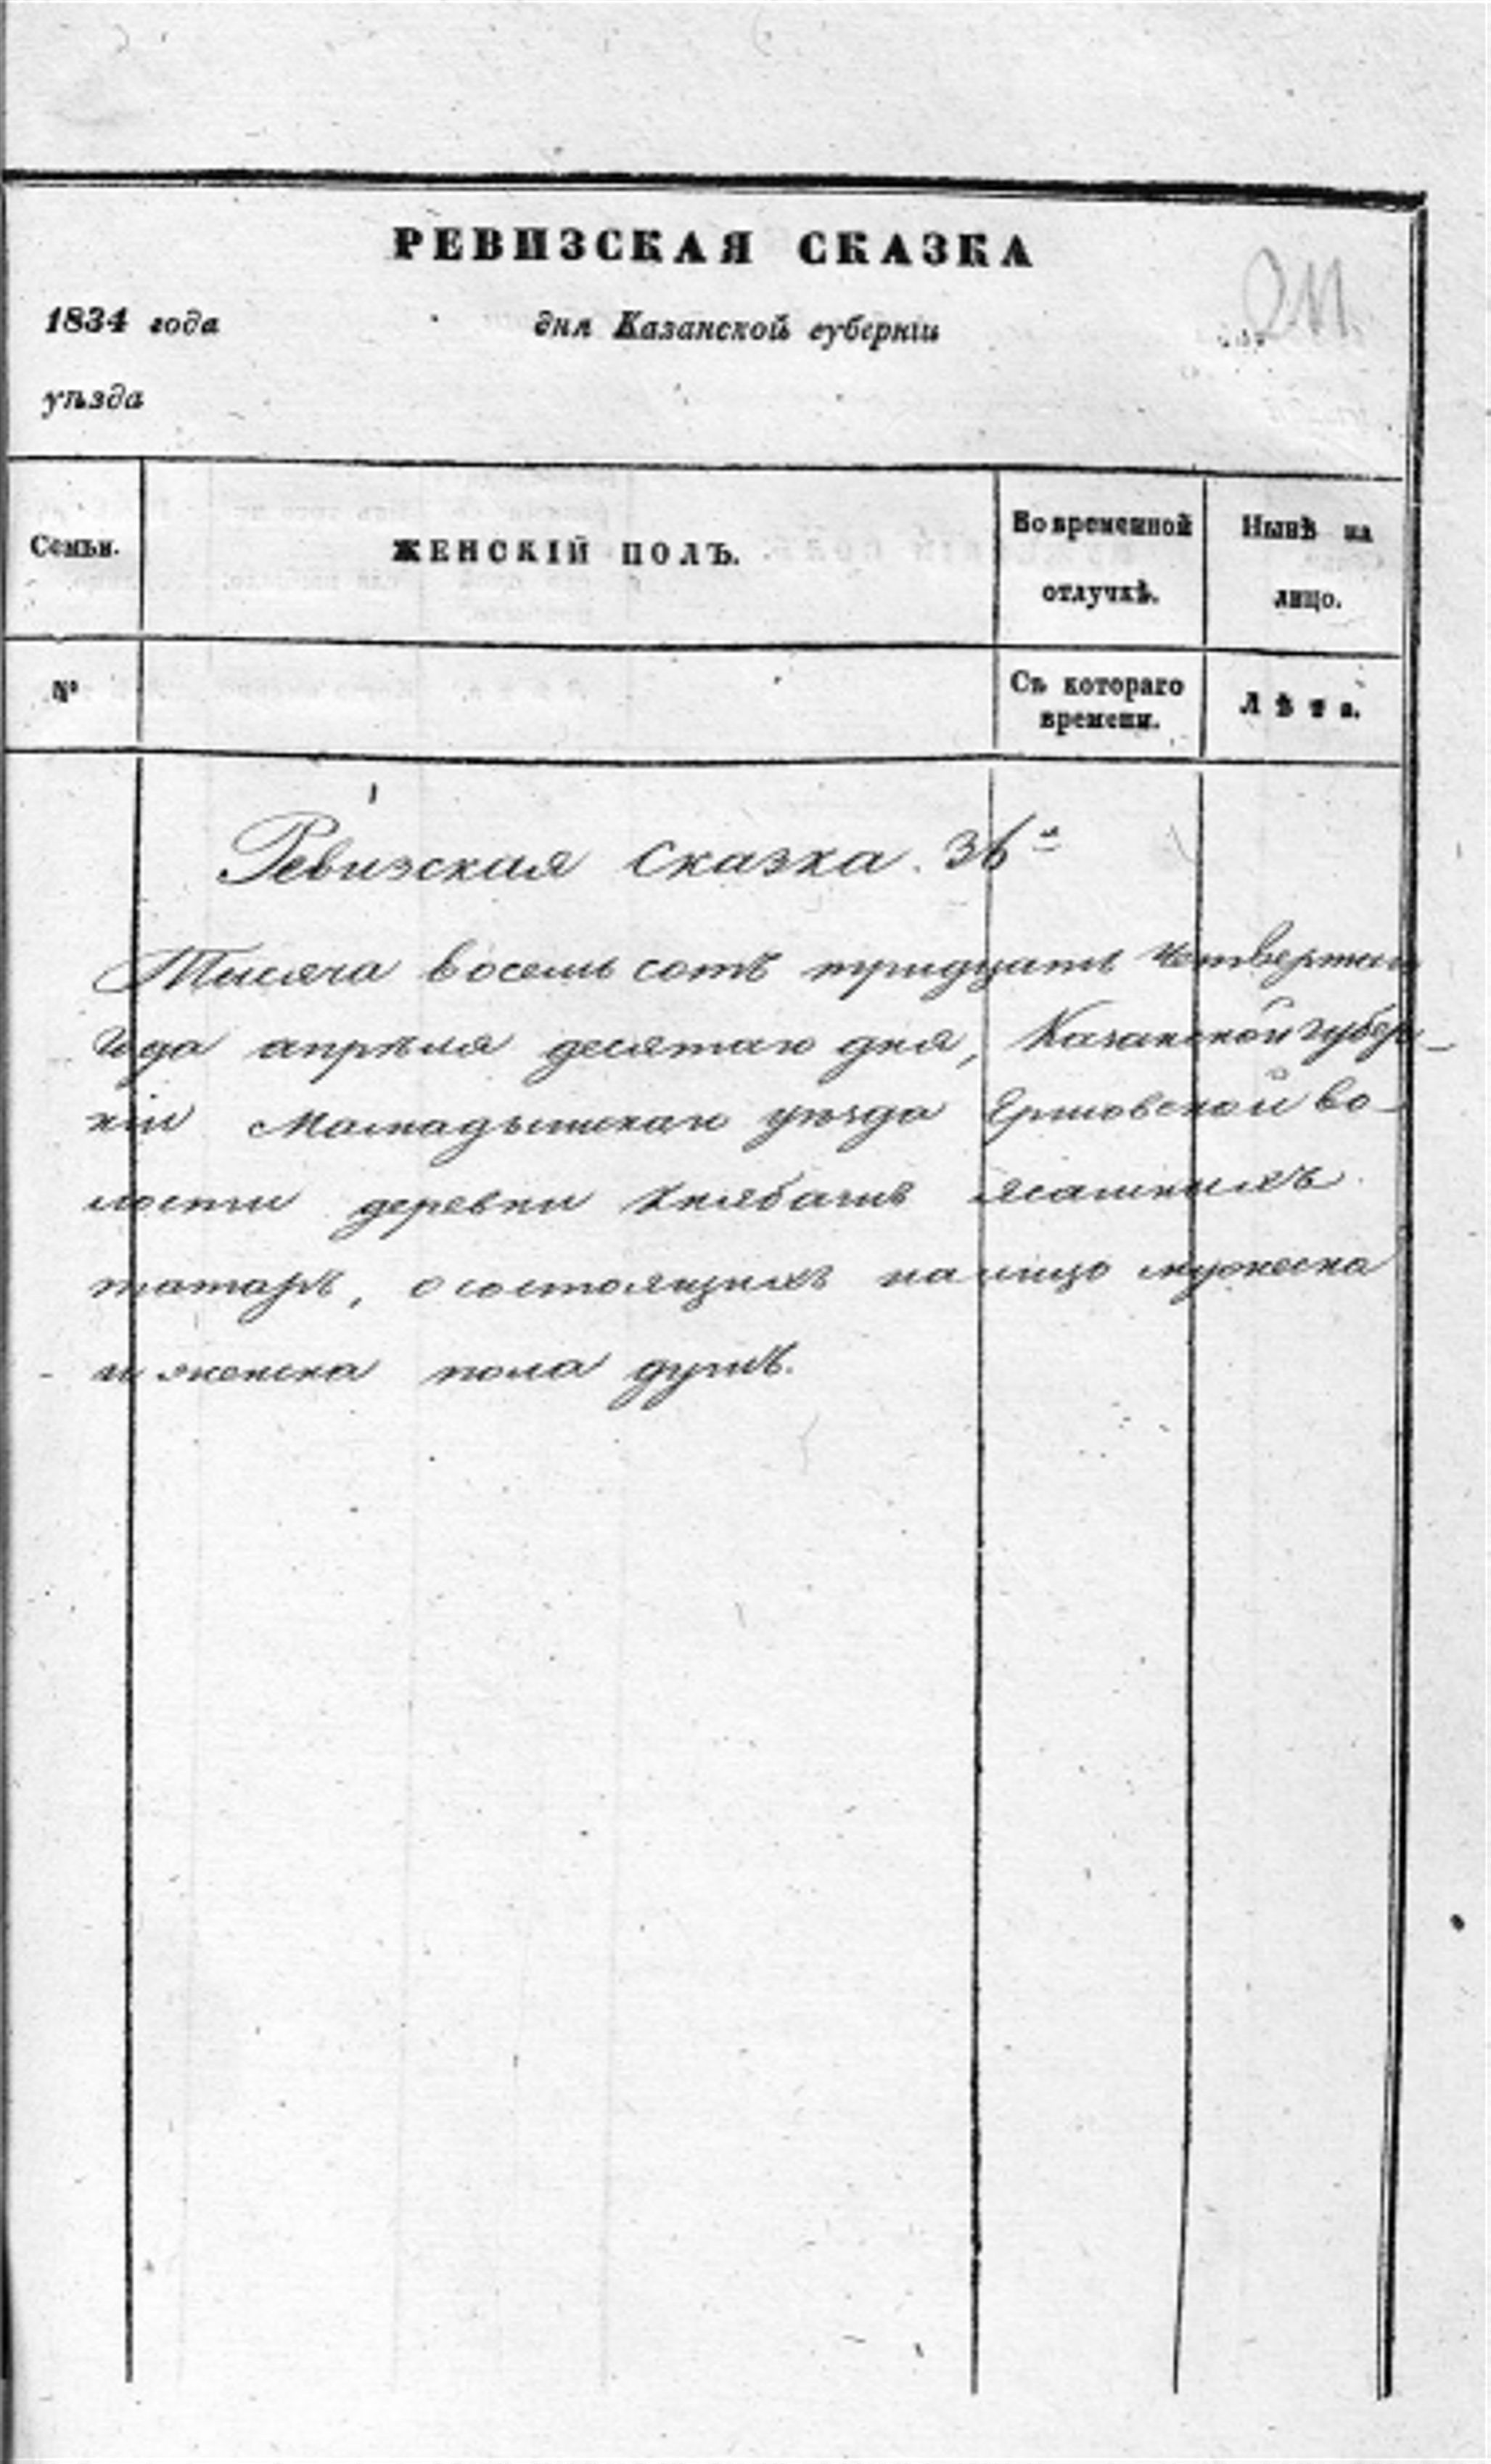 РЕВИЗСКАЯ СКАЗКА
211.
1834 года дня Казанской губерніи
уѣзда
Семьи. ЖЕНСКІЙ ПОЛЪ. Во временной отлучкѣ. Нынѣ на лицо.
№ Съ котораго времени. Лѣта.
Ревизская сказка. 36я
Тысяча восемь сотъ тридцать четвертаго
года апрѣля десятаго дня, Казанской губер-
ніи Мамадышскаго уѣзда Ершовской во-
лости деревни ясашныхъ
татаръ, о состоящихъ на лицо мужеска
и женска пола душъ.